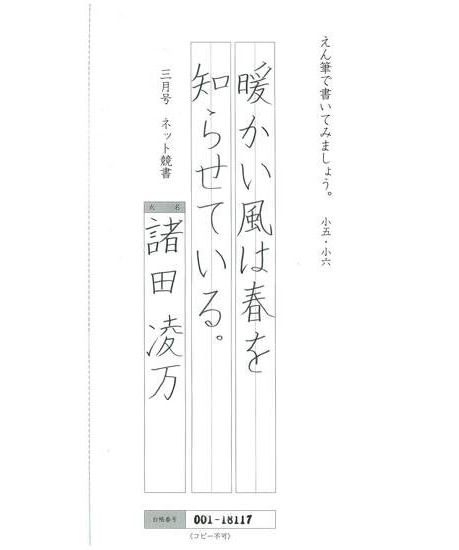 えん筆で書いてみましょう。 小五・小六
暖かい風は春を
知らせている。
三月号 ネット競書
氏 名
諸田 凌万
台帳番号 001-18117
(コピー不可)